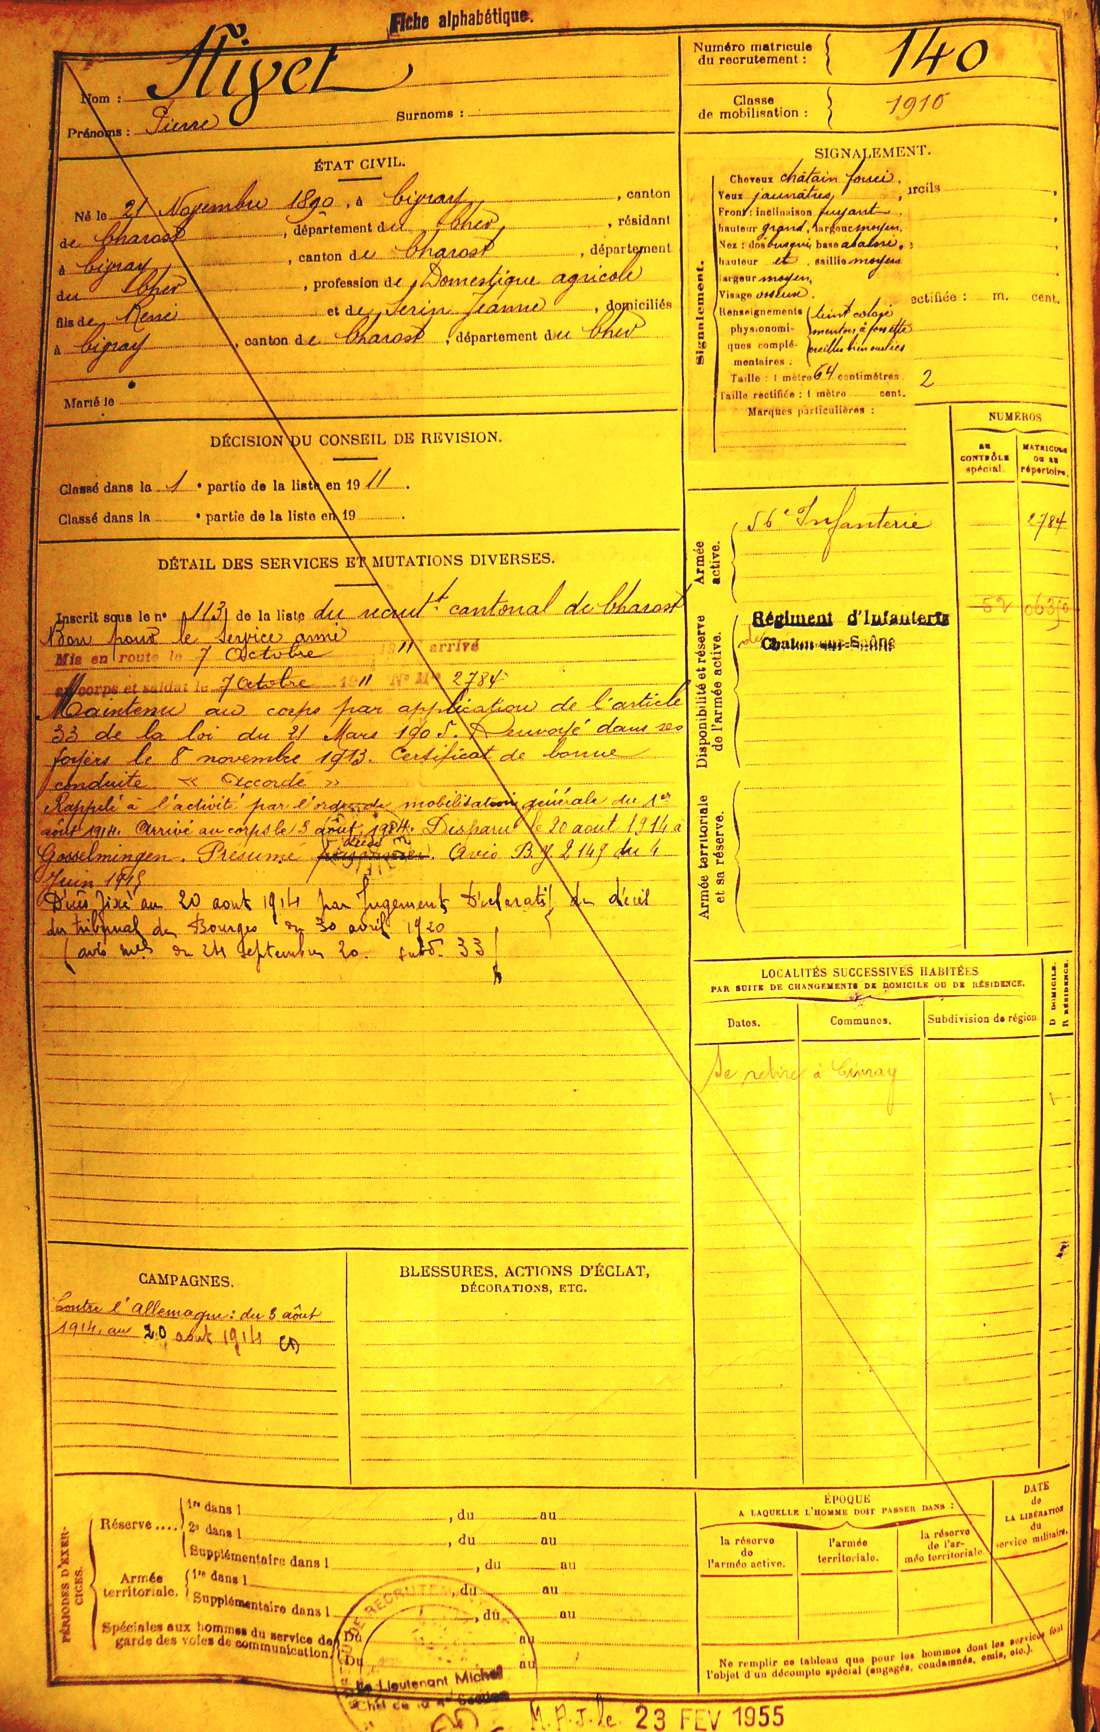 Fiche alphabétique.
Nom : Nivet
Prénoms : Pierre Surnoms :
Numéro matricule du recrutement : 140
Classe de mobilisation : 1910
ÉTAT CIVIL.
Né le 21 Novembre 1890, à Civray, canton
de Charost, département du Cher, résidant
à Civray, canton de Charost, département
du Cher, profession de Domestique agricole
fils de René et de Serin Jeanne, domiciliés
à Civray, canton de Charost, département du Cher
Marié le
DÉCISION DU CONSEIL DE REVISION.
Classé dans la 1 e partie de la liste en 1911.
Classé dans la e partie de la liste en 19 .
DÉTAIL DES SERVICES ET MUTATIONS DIVERSES.
Inscrit sous le n° 113 de la liste du recrut.t cantonal de Charost
Bon pour le service armé
Mis en route le 7 Octobre 1911 arrivé
au corps et soldat le 7 Octobre 1911 N° Mle 2784
Maintenu au corps par application de l'article
33 de la loi du 21 Mars 1905. Renvoyé dans ses
foyers le 8 novembre 1913. Certificat de bonne
conduite « Accordé »
Rappelé à l'activité par l'ordre de mobilisation générale du 1er
août 1914. Arrivé au corps le 3 août 1914. Disparu le 20 aout 1914 à
Gosselmingen. Présumé prisonnier. Avis B.Y. 2149 du 4
Juin 1915
Décès fixé au 20 aout 1914 par Jugement Déclaratif de décès
du tribunal de Bourges du 30 avril 1920
(avis mel du 24 septembre 20. subd. 33
SIGNALEMENT.
Signalement.
Cheveux châtain foncé,
Yeux jaunâtres, urcils
Front : inclinaison fuyant
hauteur grand, largeur moyen,
Nez : dos busqué, base abaissé,
hauteur et saillie moyens
largeur moyen,
Visage osseux.
Renseignements physionomiques complémentaires : teint coloré
menton à fossette
oreilles bien ourlées
ectifiée : m. cent.
Taille : 1 mètre 64 centimètres. 2
Taille rectifiée : 1 mètre cent.
Marques particulières :
NUMÉROS
AU CONTRÔLE spécial.
MATRICULE OU AU répertoire.
Armée active.
56e Infanterie 2784
Disponibilité et réserve de l'armée active.
Régiment d'Infanterie
de Chalon-sur-Saône
Armée territoriale et sa réserve.
LOCALITÉS SUCCESSIVES HABITÉES
PAR SUITE DE CHANGEMENTS DE DOMICILE OU DE RÉSIDENCE.
Dates. Communes. Subdivision de région
D DOMICILE.
R RÉSIDENCE.
Se retire à Civray
CAMPAGNES.
Contre l'Allemagne : du 3 août
1914 au 20 aout 1914
BLESSURES, ACTIONS D'ÉCLAT,
DÉCORATIONS, ETC.
PÉRIODES D'EXERCICES.
Réserve .... 1re dans l , du au
2e dans l , du au
Supplémentaire dans l , du au
Armée territoriale. 1re dans l , du au
Supplémentaire dans l , du au
Spéciales aux hommes du service de garde des voies de communication. Du au
Du au
ÉPOQUE
A LAQUELLE L'HOMME DOIT PASSER DANS :
la réserve de l'armée active.
l'armée territoriale.
la réserve de l'armée territoriale.
DATE de LA LIBÉRATION du service militaire.
Ne remplir ce tableau que pour les hommes dont les services font
l'objet d'un décompte spécial (engagés, condamnés, omis, etc.).
DE RECRUTEMENT
Le Lieutenant Michel
Chef de la 4e Section
M.A.J. le 23 FEV 1955